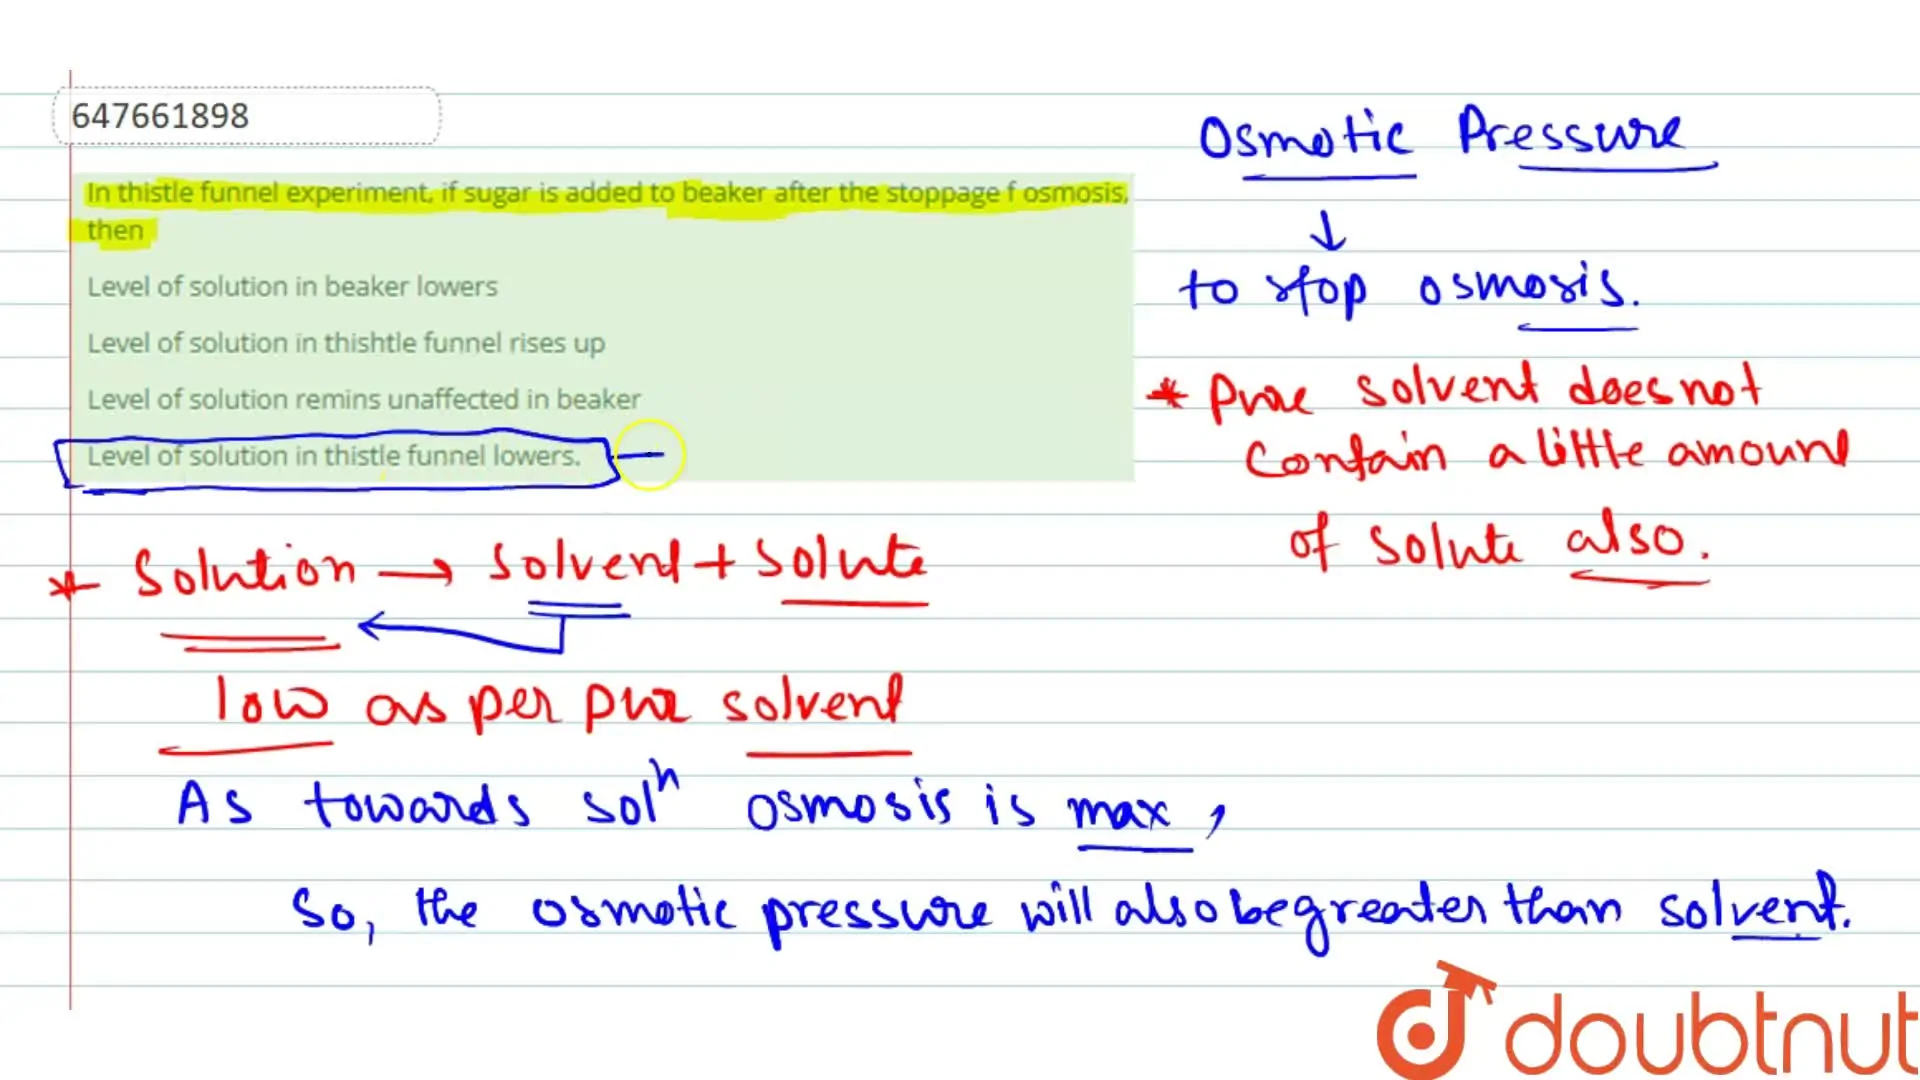 647661898
In thistle funnel experiment, if sugar is added to beaker after the stoppage f osmosis,
then
Level of solution in beaker lowers
Level of solution in thishtle funnel rises up
Level of solution remins unaffected in beaker
Level of solution in thistle funnel lowers.
Osmotic Pressure
↓
to stop osmosis.
* Pure solvent does not
contain a little amount
of solute also.
* Solution → solvent + solute
low as per pure solvent
As towards solⁿ osmosis is max,
So, the osmotic pressure will also be greater than solvent.
doubtnut